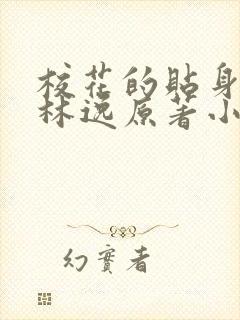 校花的贴身
林逸原著小
幻实者